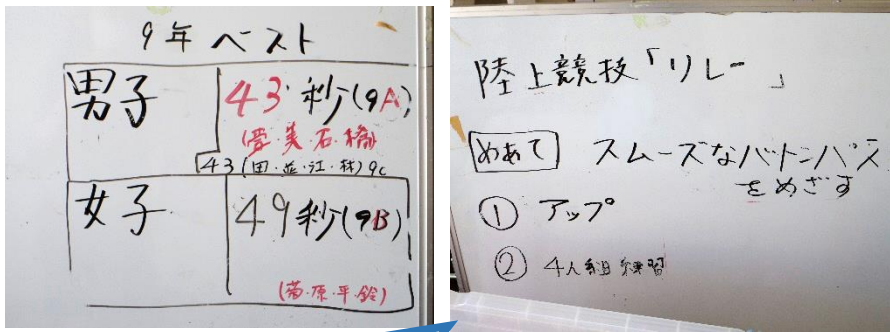 9年 ベスト
男子
43 秒(9A)
(雪・美・石・橋)
43(田・並・江・林)9c
女子
49秒(9B)
(菊・原・平・鈴)
陸上競技「リレー」
めあて スムーズなバトンパス
をめざす
① アップ
② 4人組練習